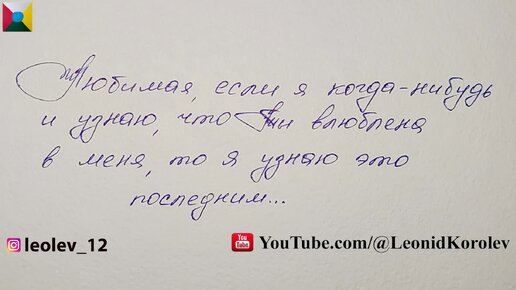 Любимая, если я когда-нибудь
и узнаю, что ты влюблена
в меня, то я узнаю это
последним...
leolev_12
YouTube.com/@LeonidKorolev
You Tube